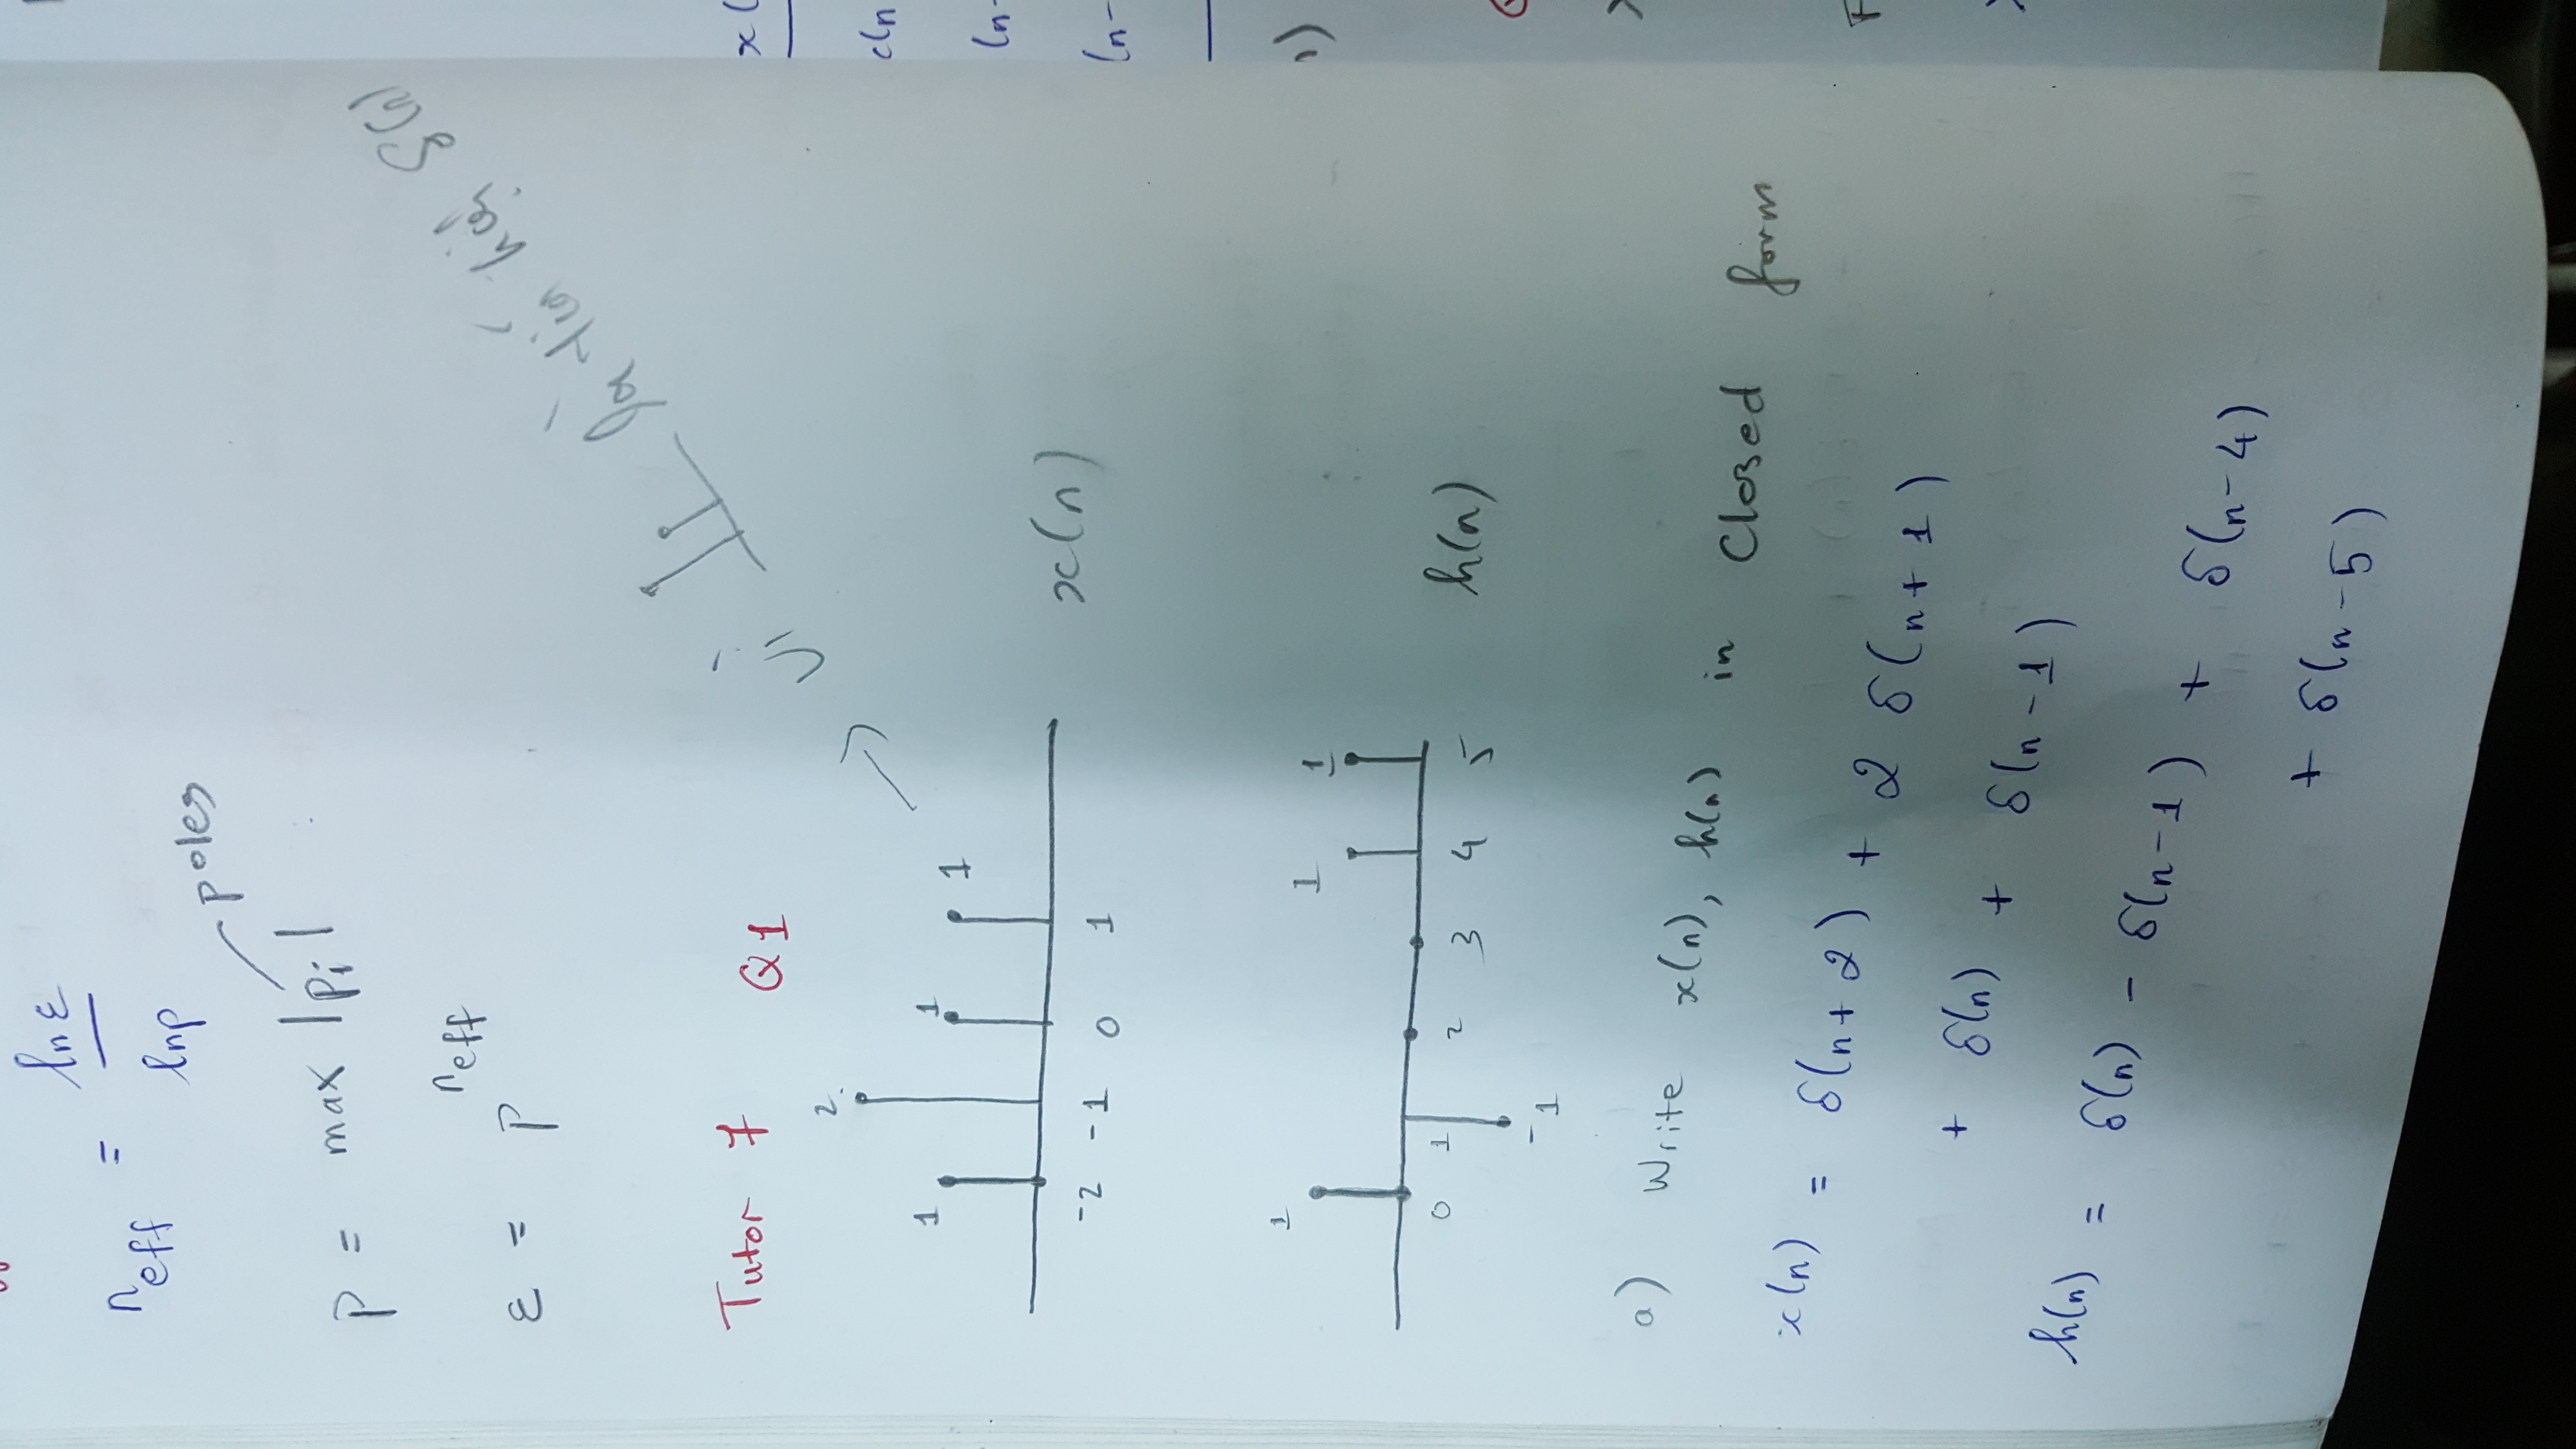 n_eff = ln ε / ln ρ
poles
ρ = max |p_i|
ε = ρ^n_eff
vì là tín hiệu δ(n)
Tutor 7 Q1
2
1 1 1
-2 -1 0 1
x(n)
1 1 1
0 1 2 3 4 5
h(n)
-1
a) Write x(n), h(n) in Closed form
x(n) = δ(n+2) + 2 δ(n+1)
+ δ(n) + δ(n-1)
h(n) = δ(n) - δ(n-1) + δ(n-4)
+ δ(n-5)
x(
c(n
(n-
(n-